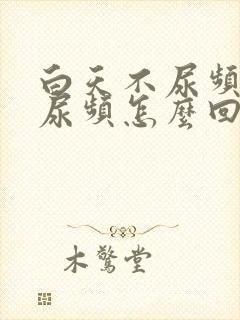 白天不尿頻
尿頻怎麼回
木驚堂